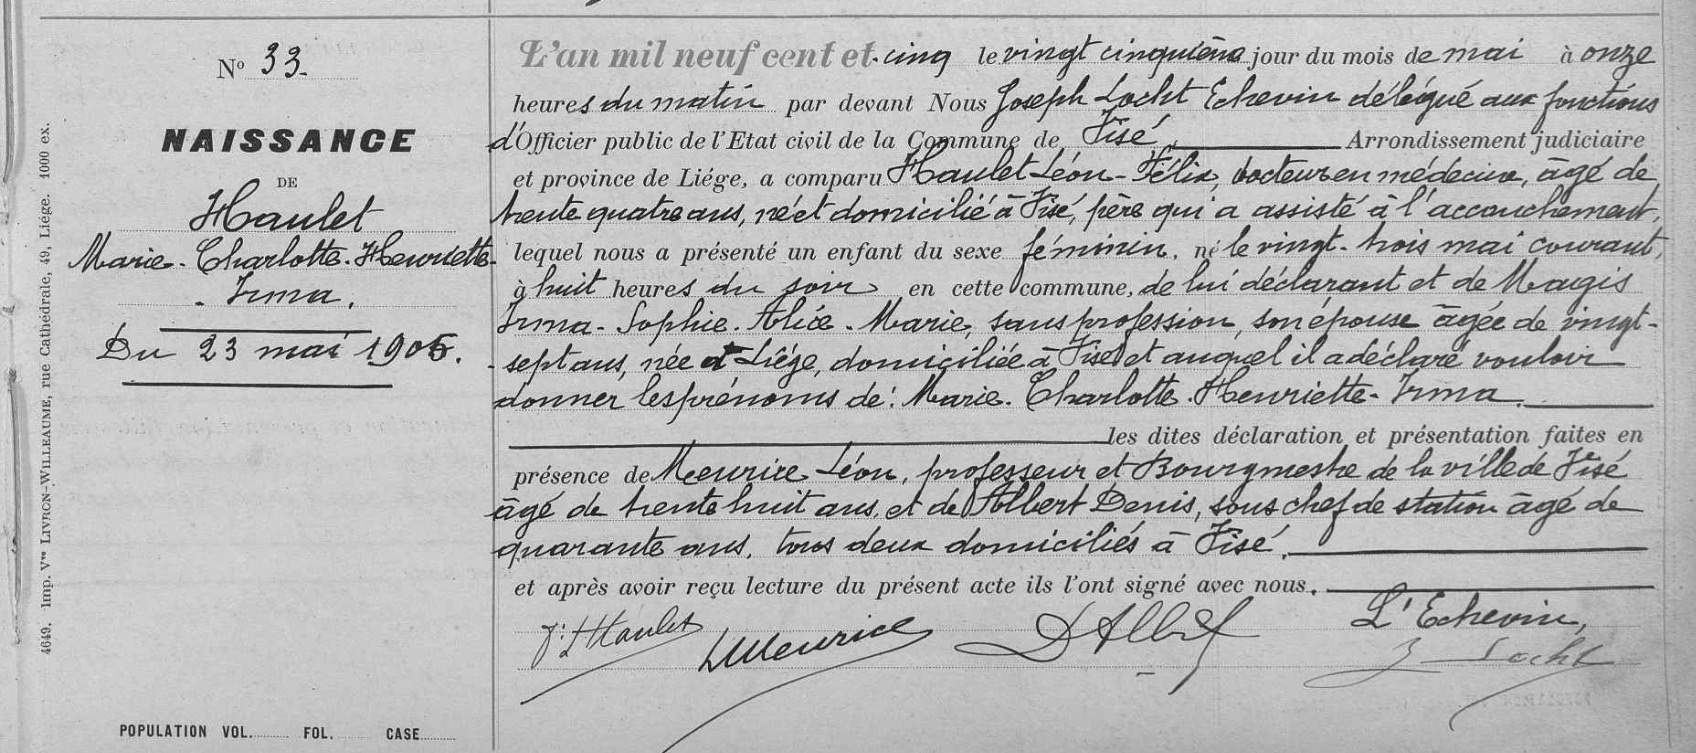 N° 33.
NAISSANCE
DE
Haulet
Marie-Charlotte-Henriette-
-Irma.
Du 23 mai 1905.
4649. Imp. Vve LIVRON-WILLEAUME, rue Cathédrale, 49, Liége. 1000 ex.
POPULATION VOL. FOL. CASE
L'an mil neuf cent et cinq le vingt cinquième jour du mois de mai à onze
heures du matin par devant Nous Joseph Locht Echevin délégué aux fonctions
d'Officier public de l'Etat civil de la Commune de Visé, Arrondissement judiciaire
et province de Liége, a comparu Haulet Léon-Félix, docteur en médecine, âgé de
trente quatre ans, né et domicilié à Visé, père qui a assisté à l'accouchement,
lequel nous a présenté un enfant du sexe féminin, né le vingt-trois mai courant,
à huit heures du soir en cette commune, de lui déclarant et de Magis
Irma-Sophie-Alice-Marie, sans profession, son épouse âgée de vingt-
-sept ans, née à Liége, domiciliée à Visé et auquel il a déclaré vouloir
donner les prénoms de: Marie-Charlotte-Henriette-Irma.
les dites déclaration et présentation faites en
présence de Meurice Léon, professeur et Bourgmestre de la ville de Visé
âgé de trente huit ans, et de Albert Denis, sous chef de station âgé de
quarante ans, tous deux domiciliés à Visé.
et après avoir reçu lecture du présent acte ils l'ont signé avec nous.
L'Echevin,
LHaulet LMeurice DAlbert J Locht